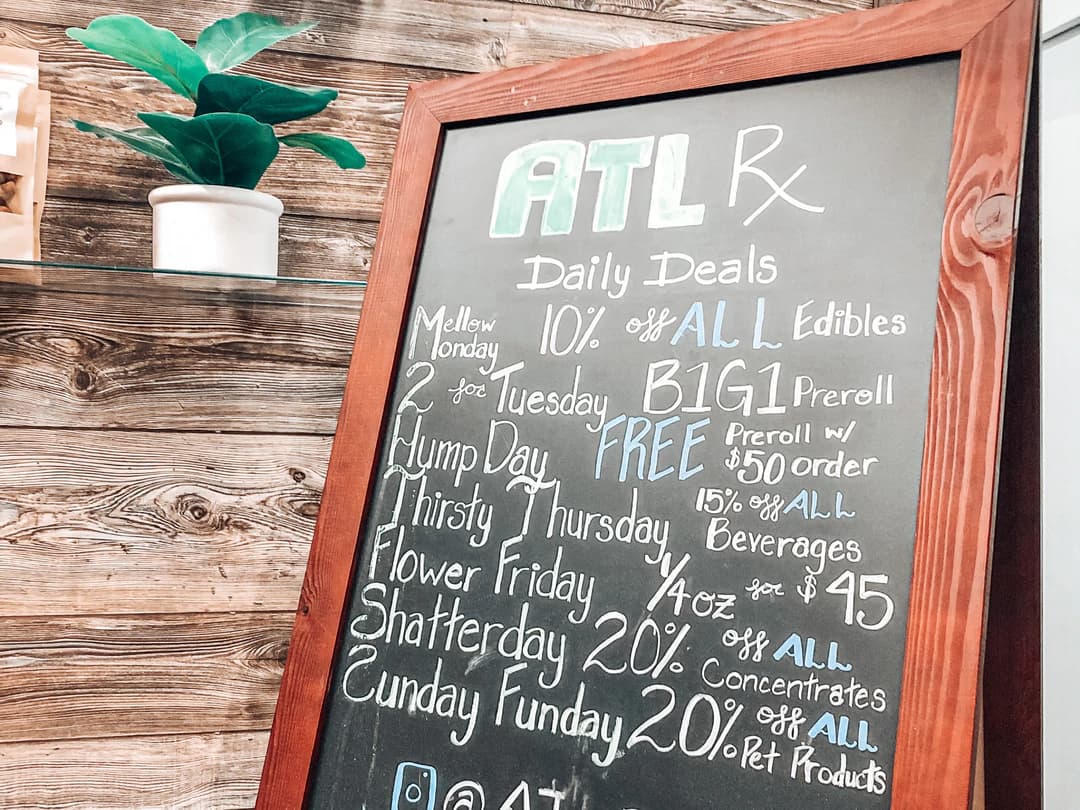 ATL Rx
Daily Deals
Mellow Monday 10% off ALL Edibles
2 for Tuesday B1G1 Preroll
Hump Day FREE Preroll w/ $50 order
Thirsty Thursday 15% off ALL Beverages
Flower Friday 1/4oz for $45
Shatterday 20% off ALL Concentrates
Sunday Funday 20% off ALL Pet Products
@AT